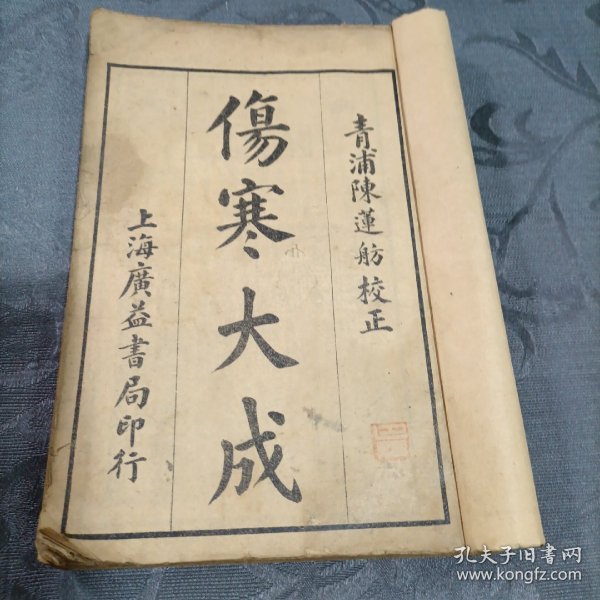 青浦陳蓮舫校正
傷寒大成
上海廣益書局印行
孔夫子旧书网
www.kongfz.com